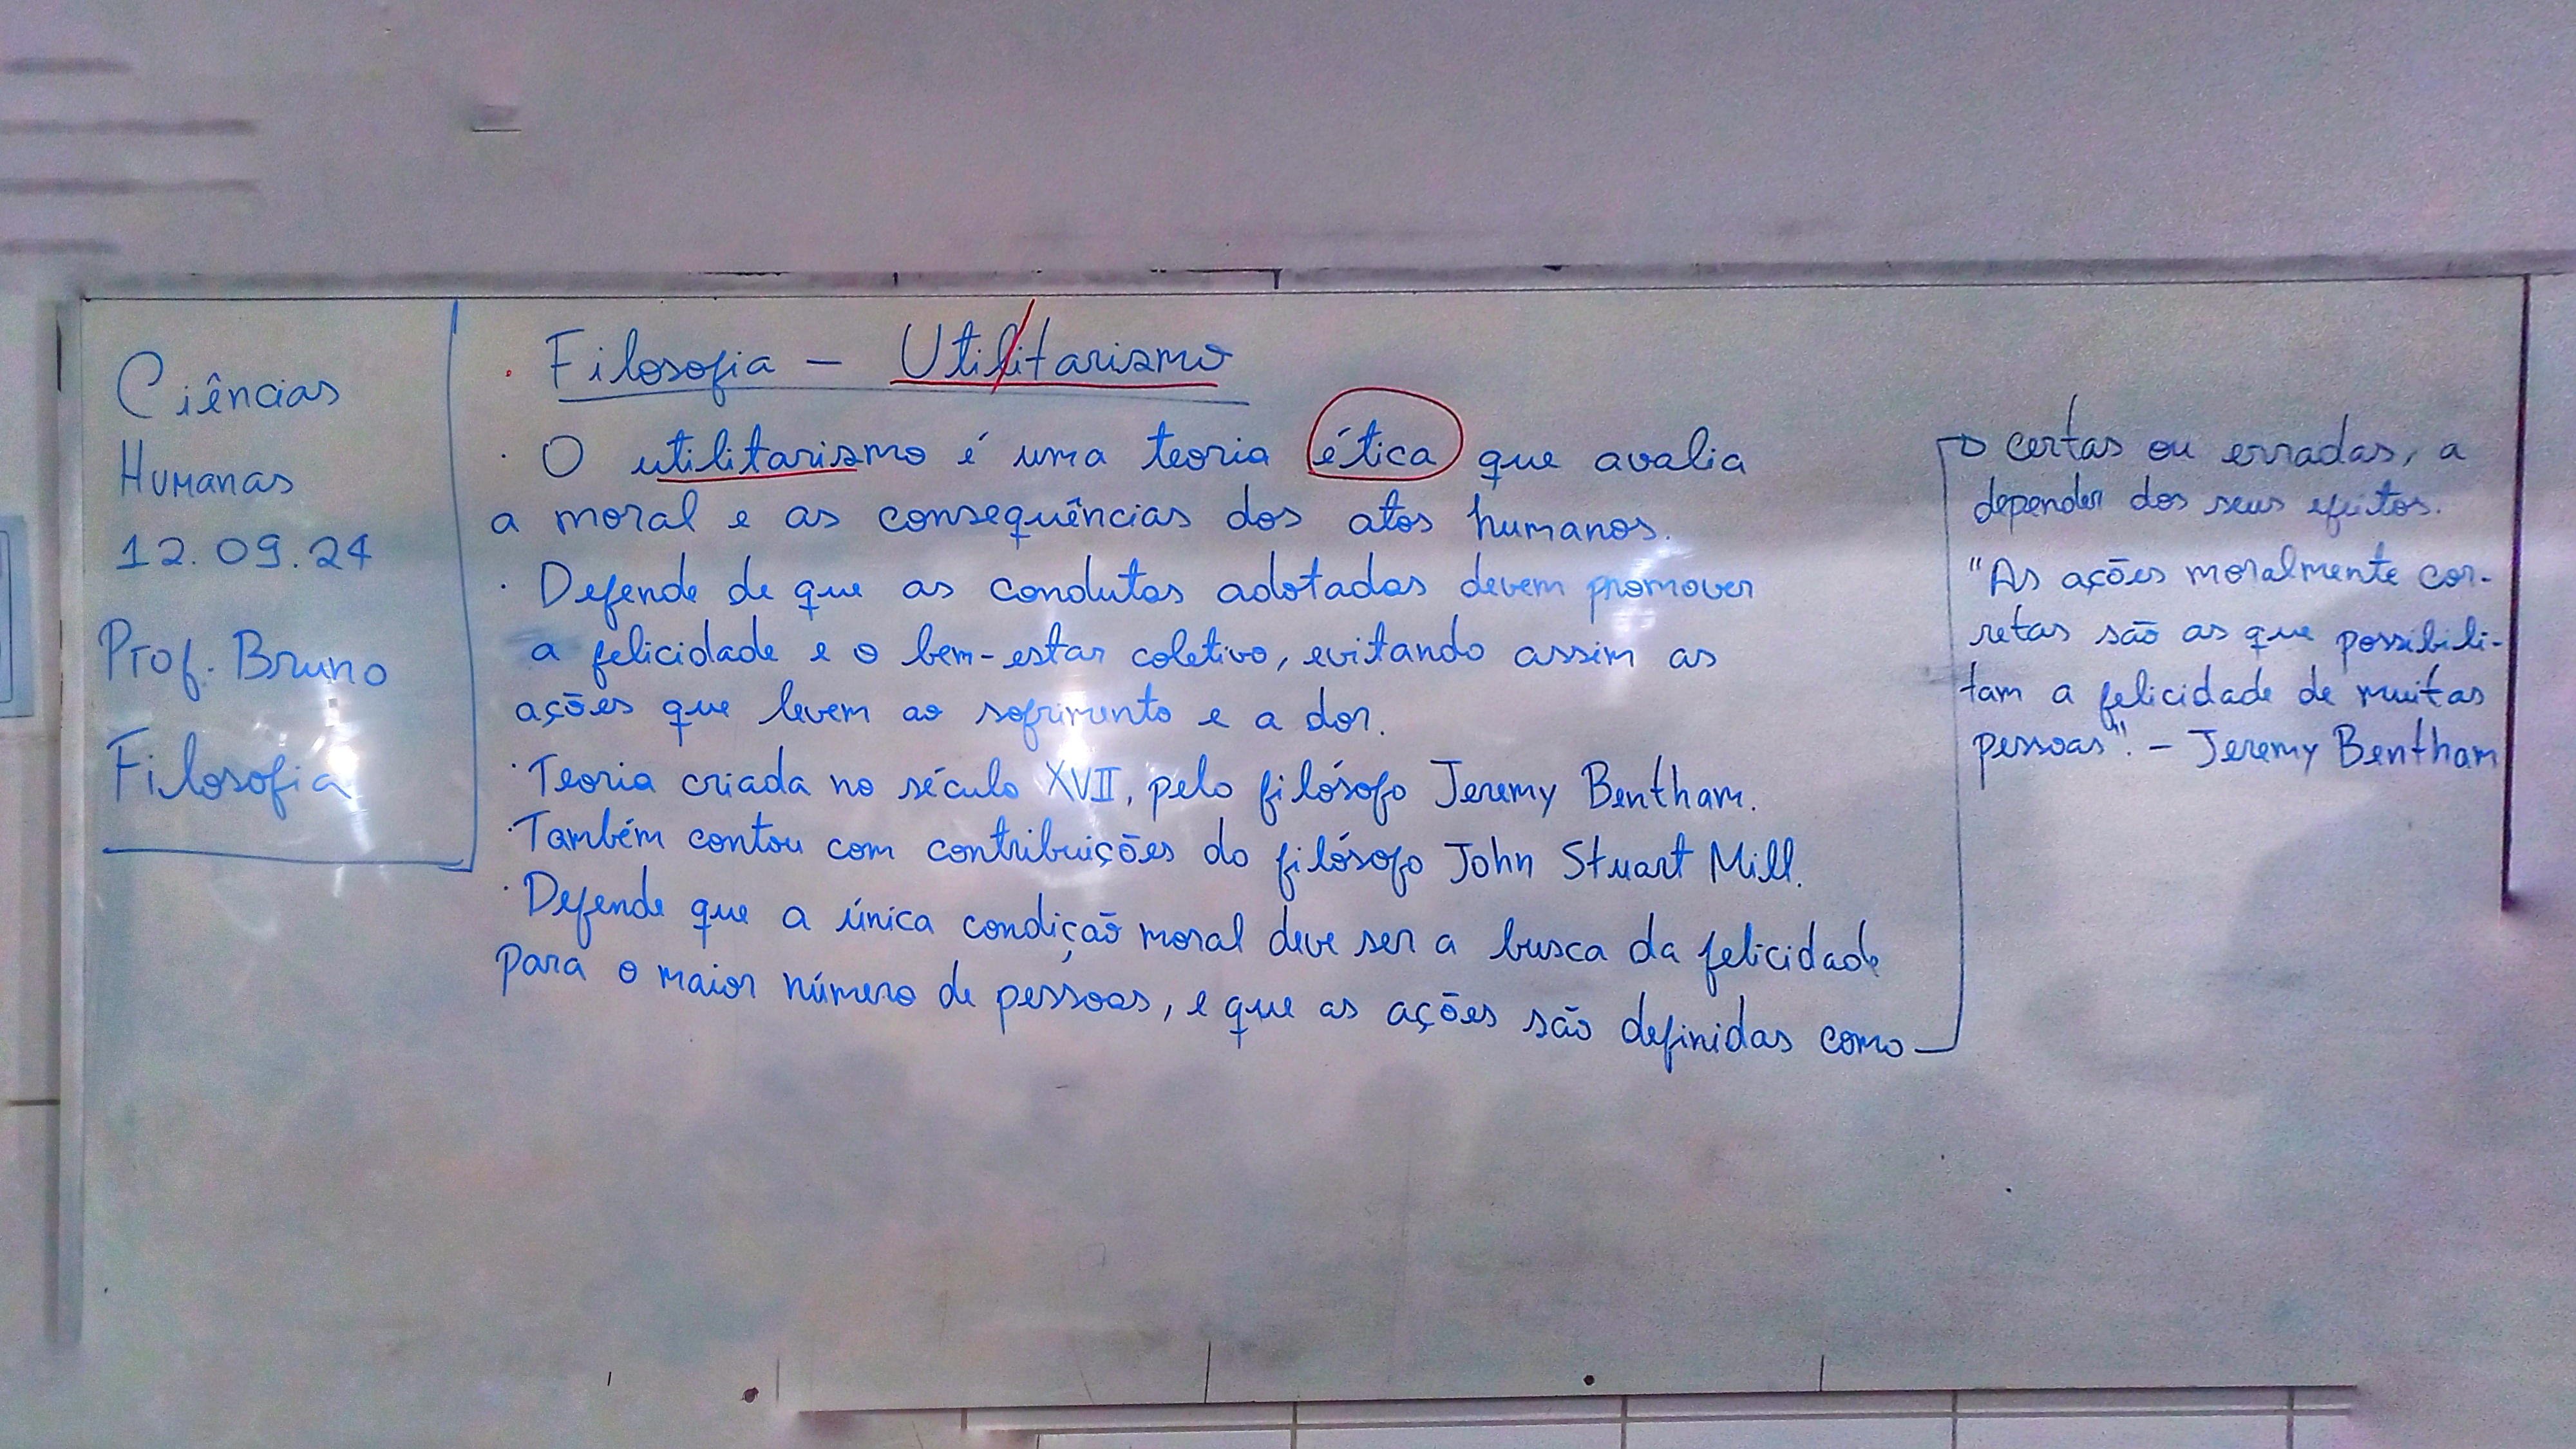 Ciências
Humanas
12.09.24
Prof. Bruno
Filosofia
· Filosofia – Utilitarismo
· O utilitarismo é uma teoria ética que avalia
a moral e as consequências dos atos humanos.
· Defende de que as condutas adotadas devem promover
a felicidade e o bem-estar coletivo, evitando assim as
ações que levem ao sofrimento e a dor.
· Teoria criada no século XVII, pelo filósofo Jeremy Bentham.
· Também contou com contribuições do filósofo John Stuart Mill.
· Defende que a única condição moral deve ser a busca da felicidade
para o maior número de pessoas, e que as ações são definidas como
certas ou erradas, a
depender dos seus efeitos.
"As ações moralmente cor-
retas são as que possibili-
tam a felicidade de muitas
pessoas". – Jeremy Bentham